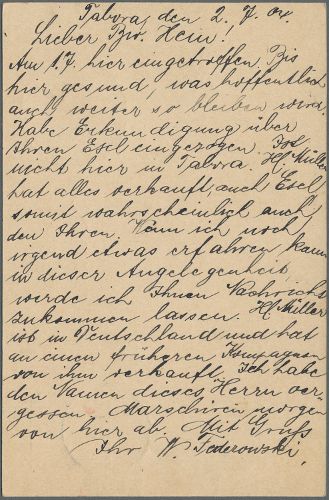 Tabora, den 2. 7. 04.
Lieber Bw. Hein!
Am 1.7. hier eingetroffen. Bis
hier gesund, was hoffentlich
auch weiter so bleiben wird.
Habe Erkundigung über
Ihren Esel eingezogen. Ist
nicht hier in Tabora. H. Müller
hat alles verkauft, auch Esel
somit wahrscheinlich auch
den Ihren. Wenn ich noch
irgend etwas erfahren kann
in dieser Angelegenheit,
werde ich Ihnen Nachricht
zukommen lassen. H. Müller
ist in Deutschland und hat
an einen früheren Kompagnon
von ihm verkauft. Ich habe
den Namen dieses Herrn ver-
gessen. Marschiren morgen
von hier ab. Mit Gruß
Ihr W. Federowski,